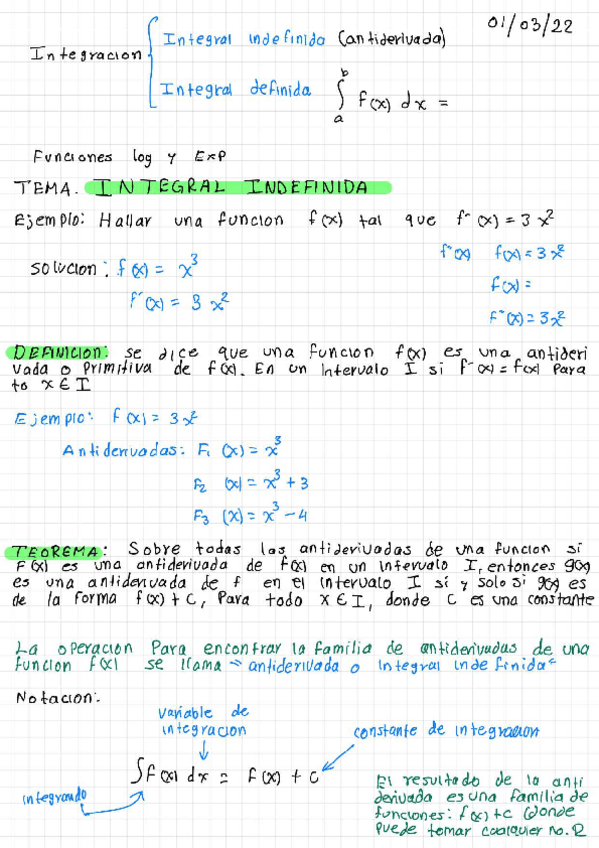 01/03/22
Integracion { Integral indefinida (antiderivada)
Integral definida ∫ₐᵇ f(x) dx =
Funciones log y Exp
TEMA. INTEGRAL INDEFINIDA
Ejemplo: Hallar una funcion f(x) tal que f'(x) = 3x²
solucion: f(x) = x³
f'(x) = 3x²
f'(x) f(x) = 3x²
f(x) =
F'(x) = 3x²
DEFINICION: se dice que una funcion f(x) es una antideri
vada o primitiva de f(x). En un Intervalo I si f'(x) = f(x) Para
to x ∈ I
Ejemplo: f(x) = 3x²
Antiderivadas: F₁ (x) = x³
F₂ (x) = x³ + 3
F₃ (x) = x³ - 4
TEOREMA: Sobre todas las antiderivadas de una funcion si
F(x) es una antiderivada de f(x) en un intervalo I, entonces g(x)
es una antiderivada de f en el intervalo I si y solo si g(x) es
de la forma f(x) + C, Para todo x ∈ I, donde C es una constante
La operacion Para encontrar la familia de antiderivadas de una
funcion f(x) se llama "antiderivada o integral indefinida"
Notacion:
variable de
integracion
constante de integracion
∫f(x) dx = f(x) + c
integrando
El resultado de la anti
derivada es una familia de
funciones: f(x)+c (donde
puede tomar cualquier no. R